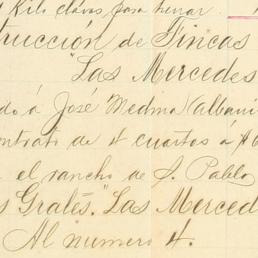 Kilo clavos para henar
trucción de Fincas
"Las Mercedes
do á José Medina (albañi
ontrato de 4 cuartos á $6
el rancho de S. Pablo
s Grales. "Las Merced
Al numero 4.